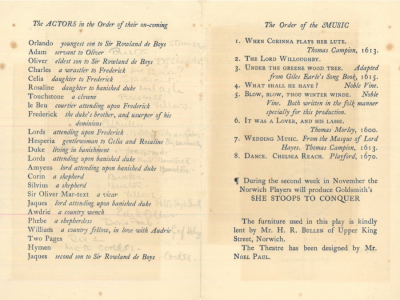 The ACTORS in the Order of their on-coming
Orlando youngest son to Sir Rowland de Boys
Adam servant to Oliver
Oliver eldest son to Sir Rowland de Boys
Charles a wrastler to Frederick
Celia daughter to Frederick
Rosaline daughter to banished duke
Touchstone a clowne
le Beu courtier attending upon Frederick
Frederick the duke's brother, and usurper of his
dominions
Lords attending upon Frederick
Hesperia gentlewoman to Celia and Rosaline
Duke living in banishment
Lords attending upon banished duke
Amyens lord attending upon banished duke
Corin a shepherd
Silvius a shepherd
Sir Oliver Mar-text a vicar
Jaques lord attending upon banished duke
Awdrie a country wench
Phebe a shepherdess
William a country fellow, in love with Audrie
Two Pages
Hymen
Jaques second son to Sir Rowland de Boys
The Order of the MUSIC
1. WHEN CORINNA PLAYS HER LUTE.
Thomas Campion, 1613.
2. THE LORD WILLOUGHBY.
3. UNDER THE GREENE WOOD TREE. Adapted
from Giles Earle's Song Book, 1615.
4. WHAT SHALL HE HAVE? Noble Vine.
5. BLOW, BLOW, THOU WINTER WINDE. Noble
Vine. Both written in the folk manner
specially for this production.
6. IT WAS A LOVER, AND HIS LASSE.
Thomas Morley, 1600.
7. WEDDING MUSIC. From the Masque of Lord
Hayes. Thomas Campion, 1613.
8. DANCE. CHELSEA REACH. Playford, 1670.
¶ During the second week in November the
Norwich Players will produce Goldsmith's
SHE STOOPS TO CONQUER
The furniture used in this play is kindly
lent by Mr. H. R. BULLEN of Upper King
Street, Norwich.
The Theatre has been designed by Mr.
NOEL PAUL.